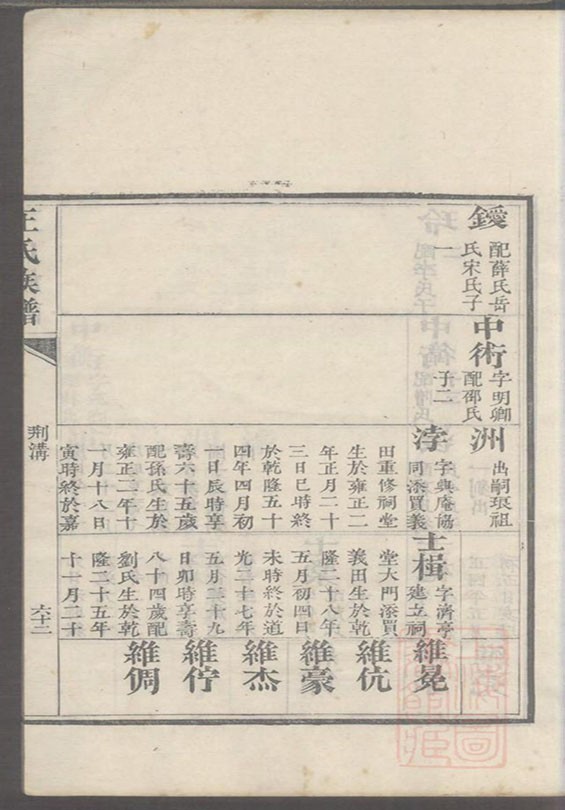 鑀
配薛氏岳
氏宋氏子
一
中術
字明卿
配邵氏
子二
洲
出嗣琅祖
浡
字典庵協
同添買義
田重修祠堂
生於雍正二
年正月二十
三日巳時終
於乾隆五十
四年四月初
一日辰時享
壽六十五歲
配孫氏生於
雍正二年十
一月十八日
寅時終於嘉
士楫
字濟亭
建立祠
堂大門添買
義田生於乾
隆二十八年
五月初四日
未時終於道
光二十七年
五月二十九
日卯時享壽
八十四歲配
劉氏生於乾
隆二十五年
十一月二十
維冕
維伉
維豪
維杰
維佇
維倜
王氏族譜
荆溝
六十二